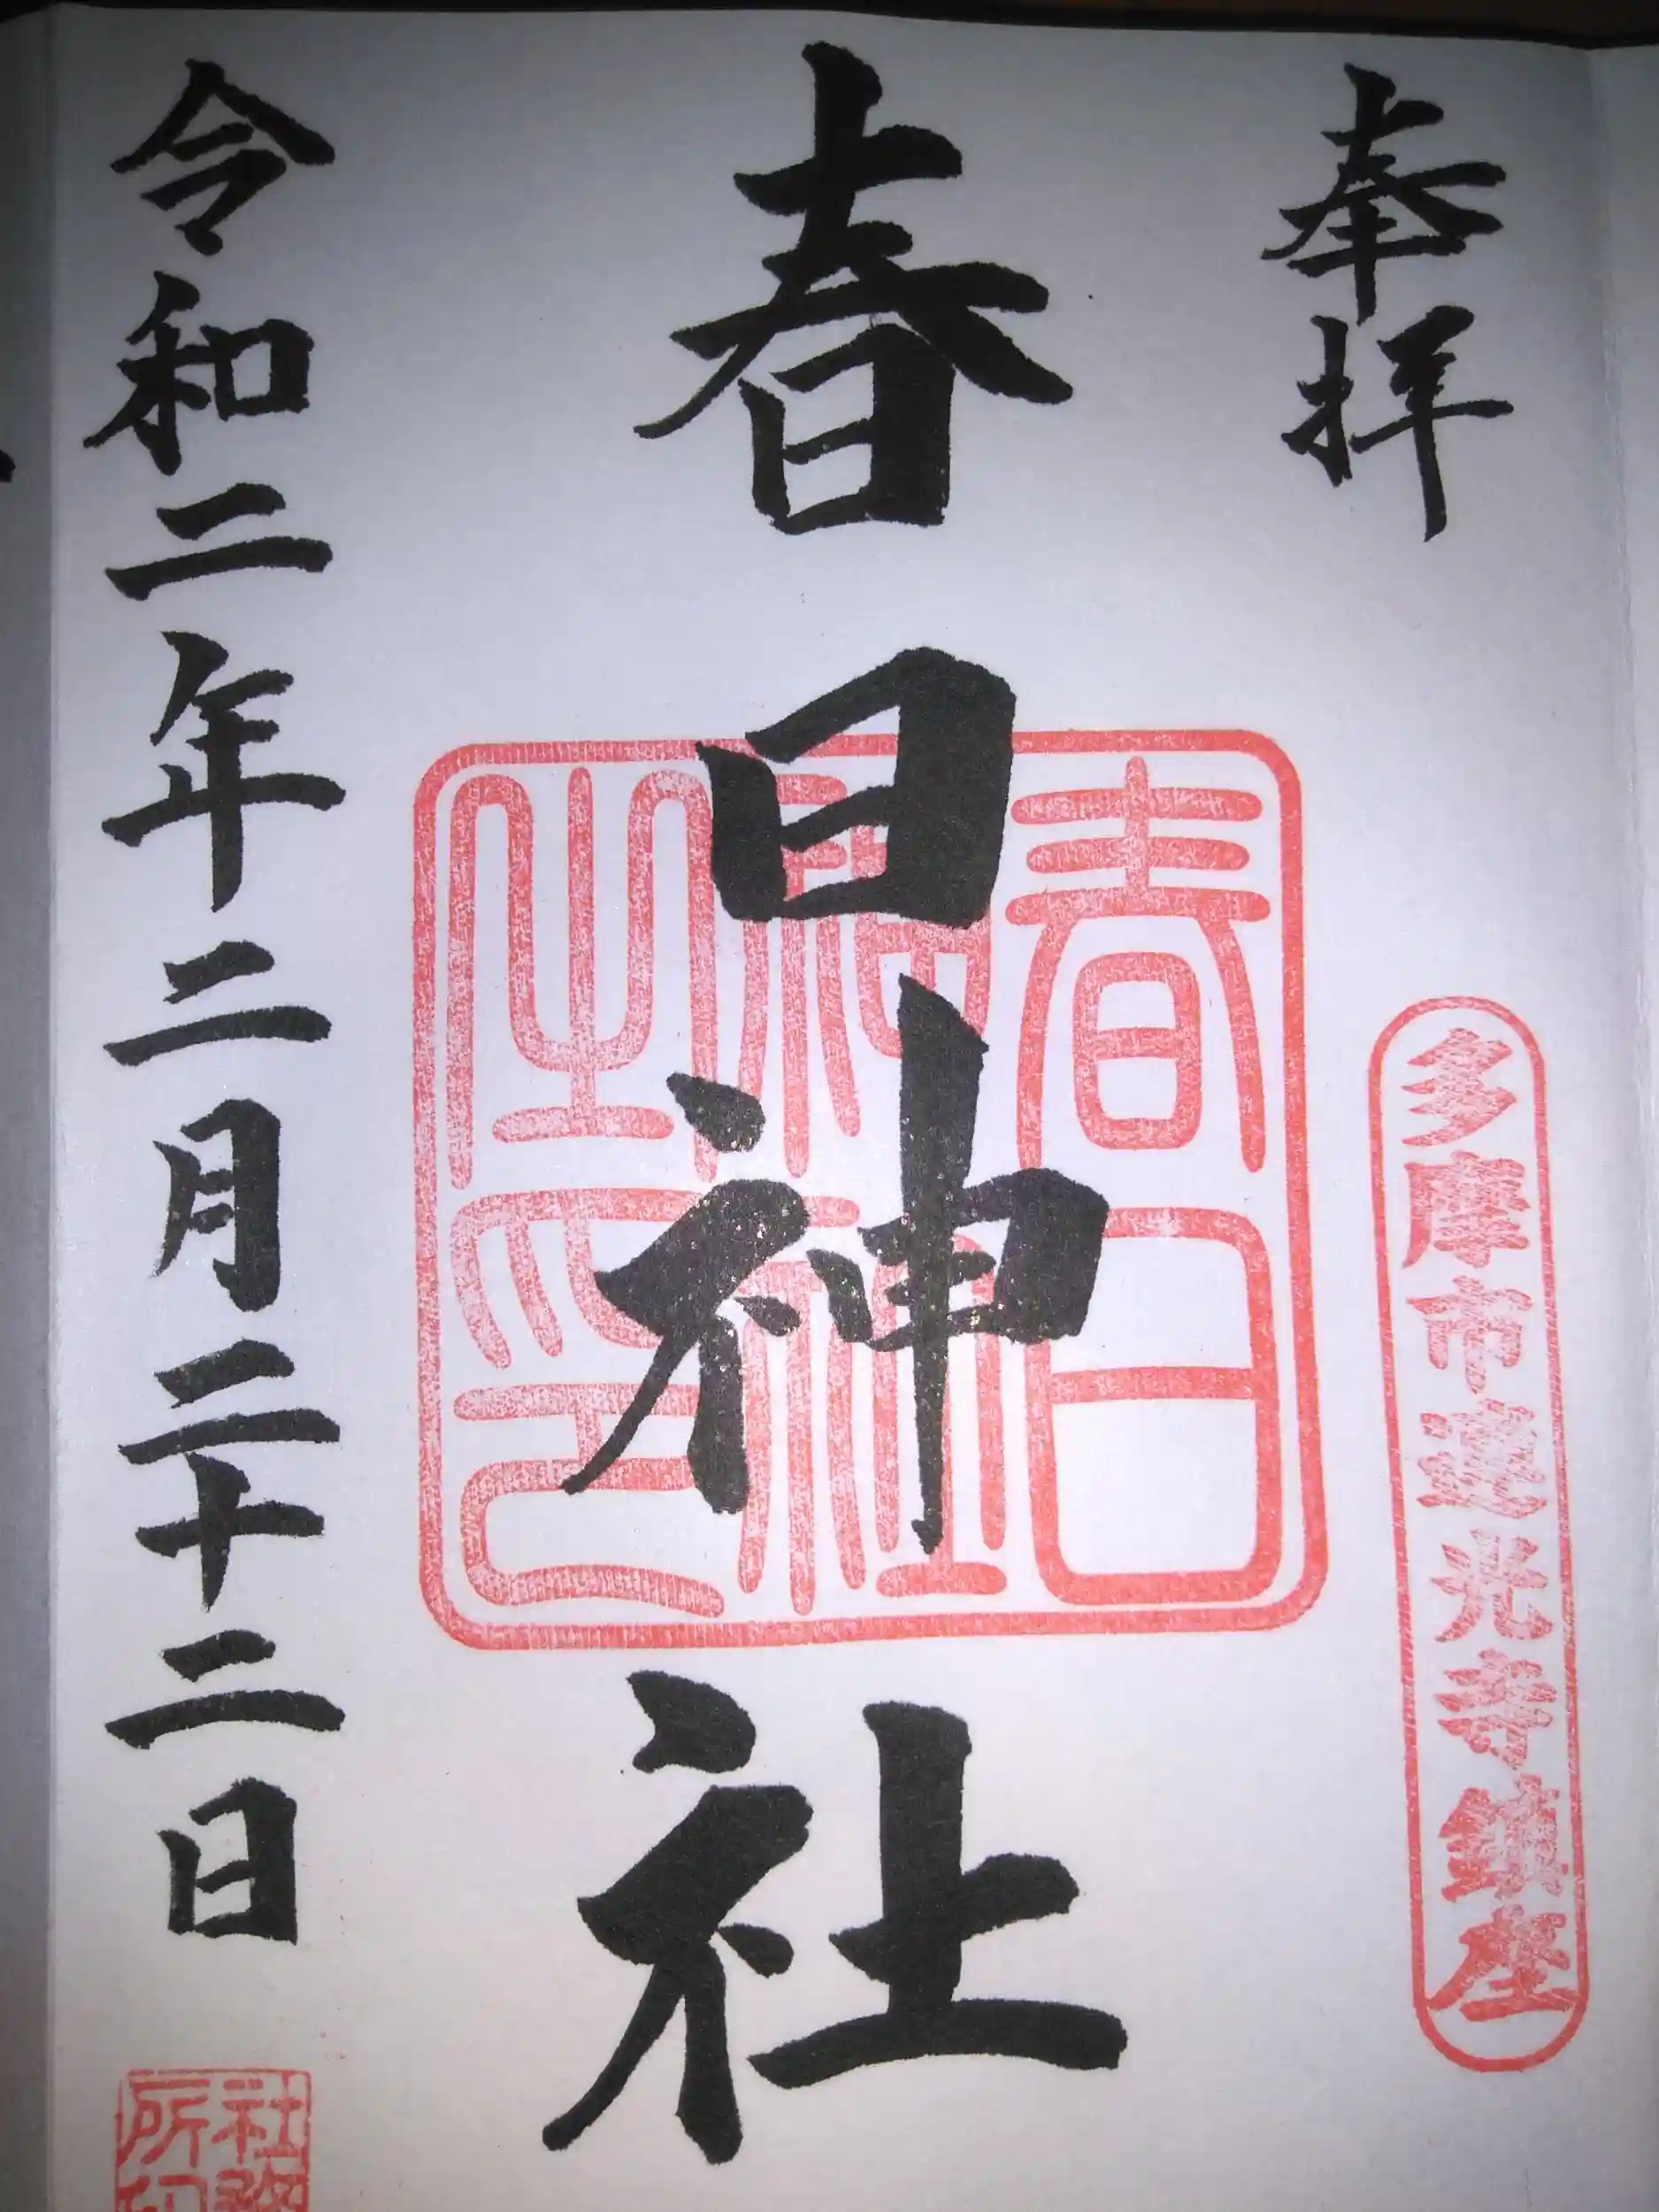 奉拝
多摩市連光寺鎮座
春日神社
春日神社之印
令和二年二月二十二日
社務所印